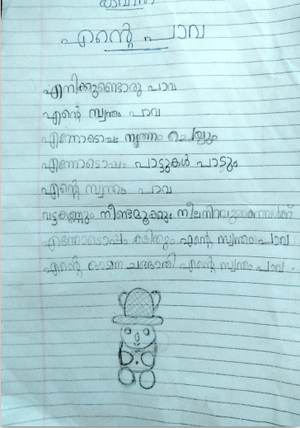 കവിത
എന്റെ പാവ
എനിക്കുണ്ടൊരു പാവ
എന്റെ സ്വന്തം പാവ
എന്നോടൊപ്പം നൃത്തം ചെയ്യും
എന്നോടൊപ്പം പാട്ടുകൾ പാടും
എന്റെ സ്വന്തം പാവ
വട്ടകണ്ണും നീണ്ടമൂക്കും
എന്നോടൊപ്പം കളിക്കും എന്റെ സ്വന്തം പാവ
എന്റെ ഓമന ചങ്ങാതി എന്റെ സ്വന്തം പാവ .